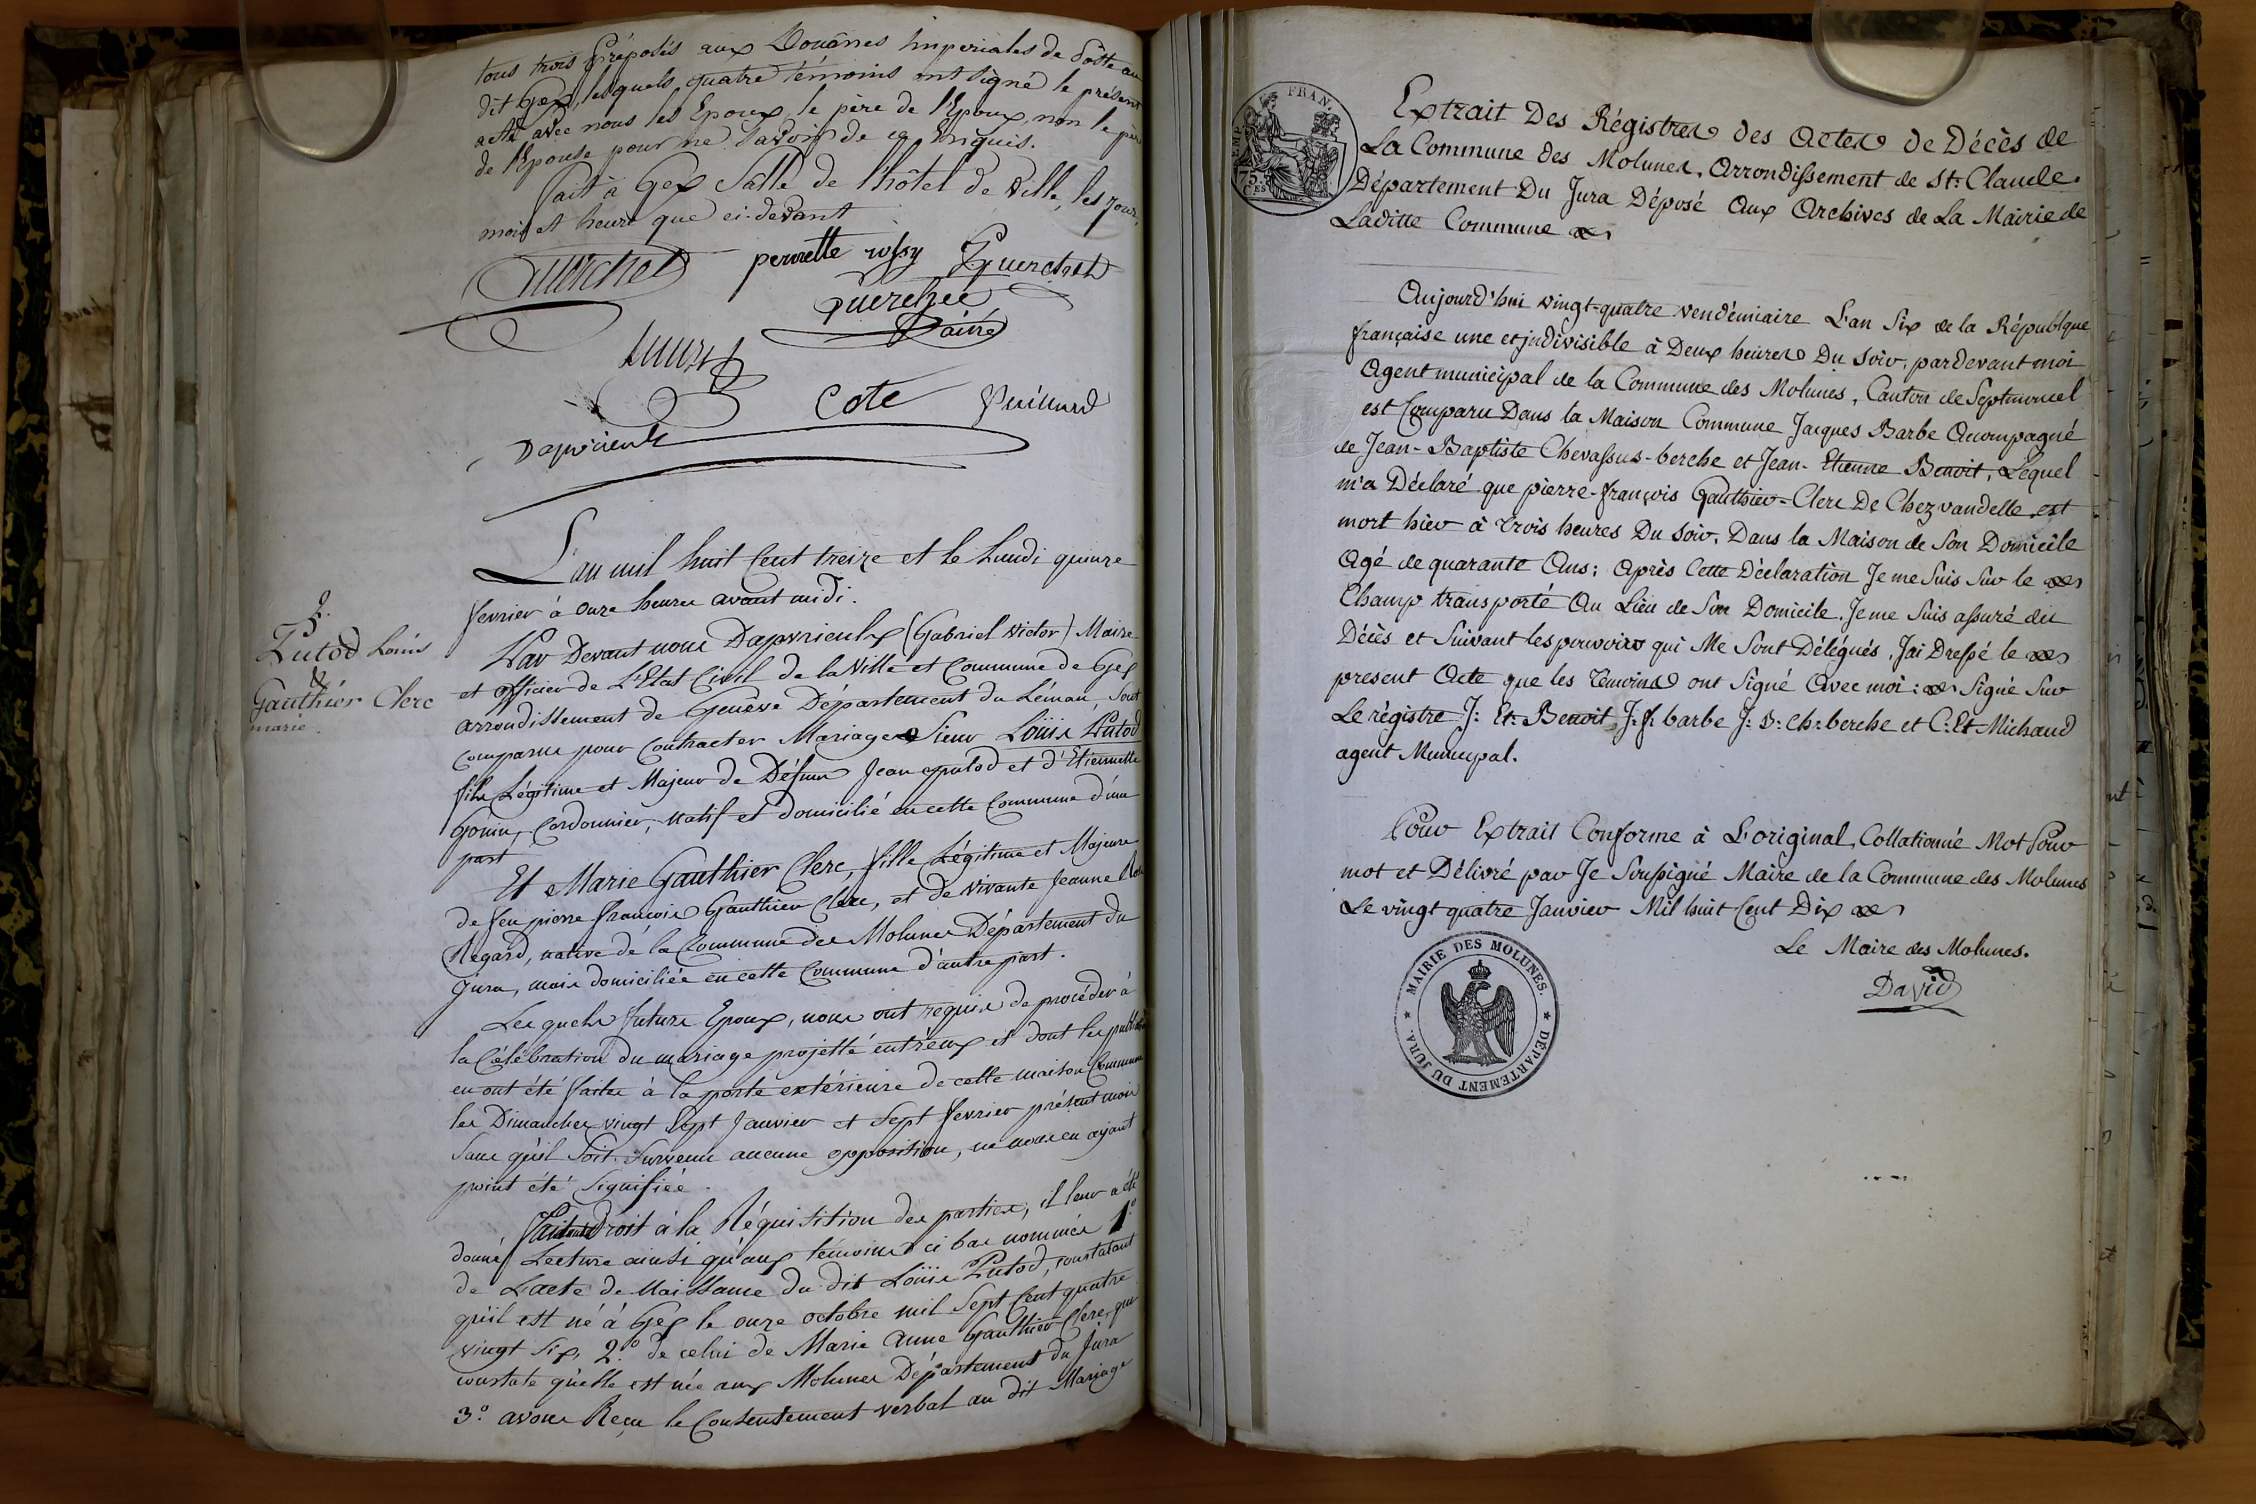 tous trois Préposés aux Douânes Impériales de Poste au
dit Gex, lesquels quatre témoins ont signé le présent
acte avec nous les Epoux, le père de l'Epoux, non le père
de l'Epouse pour ne savoir de ce enquis.
fait à Gex Salle de l'hôtel de ville, les jour,
mois et heure que ci-devant
perrette rossy
Cote
Dapvrieulx
L'an mil huit Cent treize et le Lundi quinze
fevrier à onze heures avant midi.
Par Devant nous Dapvrieulx (Gabriel Victor) Maire
et officier de L'Etat Civil de la Ville et Commune de Gex
arrondissement de Genève Département du Léman, Sont
comparus pour Contracter Mariage Sieur Loüis Putod
fils Légitime et Majeur de Défunt Jean putod et d'Etiennette
Gonin, Cordonnier, natif et domicilié en cette Commune d'une
part
Et Marie Gauthier Clerc, fille Légitime et Majeure
de feu pierre françois Gauthier Clerc, et de vivante Jeanne
Regard, native de la Commune des Molunes Département du
Jura, mais domiciliée en cette Commune d'autre part.
Lesquels futurs Epoux, nous ont requis de procéder à
la Célébration du mariage projetté entr'eux et dont les
en ont été faites à la porte extérieure de cette maison Commune
les Dimanches vingt Sept Janvier et Sept fevrier présent mois
Sans qu'il Soit Survenu aucune opposition, ne nous en ayant
point été Signifiée.
Droit à la Réquisition des parties, il leur a été
donné Lecture ainsi qu'aux témoins ci bas nommés 1.º
de L'acte de Naissance du dit Loüis Putod, constatant
qu'il est né à Gex le onze octobre mil Sept Cent quatre
vingt Six, 2.º de celui de Marie Anne Gauthier-Clerc, qui
constate qu'elle est née aux Molunes Département du Jura
3.º avons Reçu le Consentement verbal au dit Mariage
Putod Loüis
&
Gauthier Clerc
marie.
FRAN.
75
Extrait Des Régistres des Actes de Décès de
La Commune des Molunes, Arrondissement de St: Claude.
Département Du Jura Déposé Aux Archives de La Mairie de
Laditte Commune
Aujourd'hui vingt-quatre vendémiaire L'an Six de la République
française une et jndivisible à Deux heures Du Soir, pardevant moi
Agent municipal de la Commune des Molunes, Canton de Septmoncel
est Comparu Dans la Maison Commune Jacques Barbe Accompagné
de Jean-Baptiste Chevassus-berche et Jean-Etienne Benoit, Lequel
m'a Déclaré que pierre-françois Gauthier-Clerc De Chezvandelle est
mort hier à trois heures Du Soir, Dans la Maison de Son Domicile
Agé de quarante Ans; Après Cette Déclaration Je me Suis Sur le
Champ transporté Au Lieu de Son Domicile. Je me Suis assuré du
Décès et Suivant les pouvoirs qui Me Sont Délégués, J'ai Dressé le
présent Acte que les Témoins ont Signé Avec moi: Signé Sur
Le régistre J: Et: Benoit, J: f. barbe J: B: ch: berche et C: Et Michaud
agent Municipal.
Pour Extrait Conforme à L'original, Collationnée Mot Pour
mot et Délivré par Je Soussigné Maire de la Commune des Molunes
Le vingt quatre Janvier Mil huit Cent Dix
Le Maire des Molunes.
David
MAIRIE DES MOLUNES. ★ DÉPARTEMENT DU JURA. ★